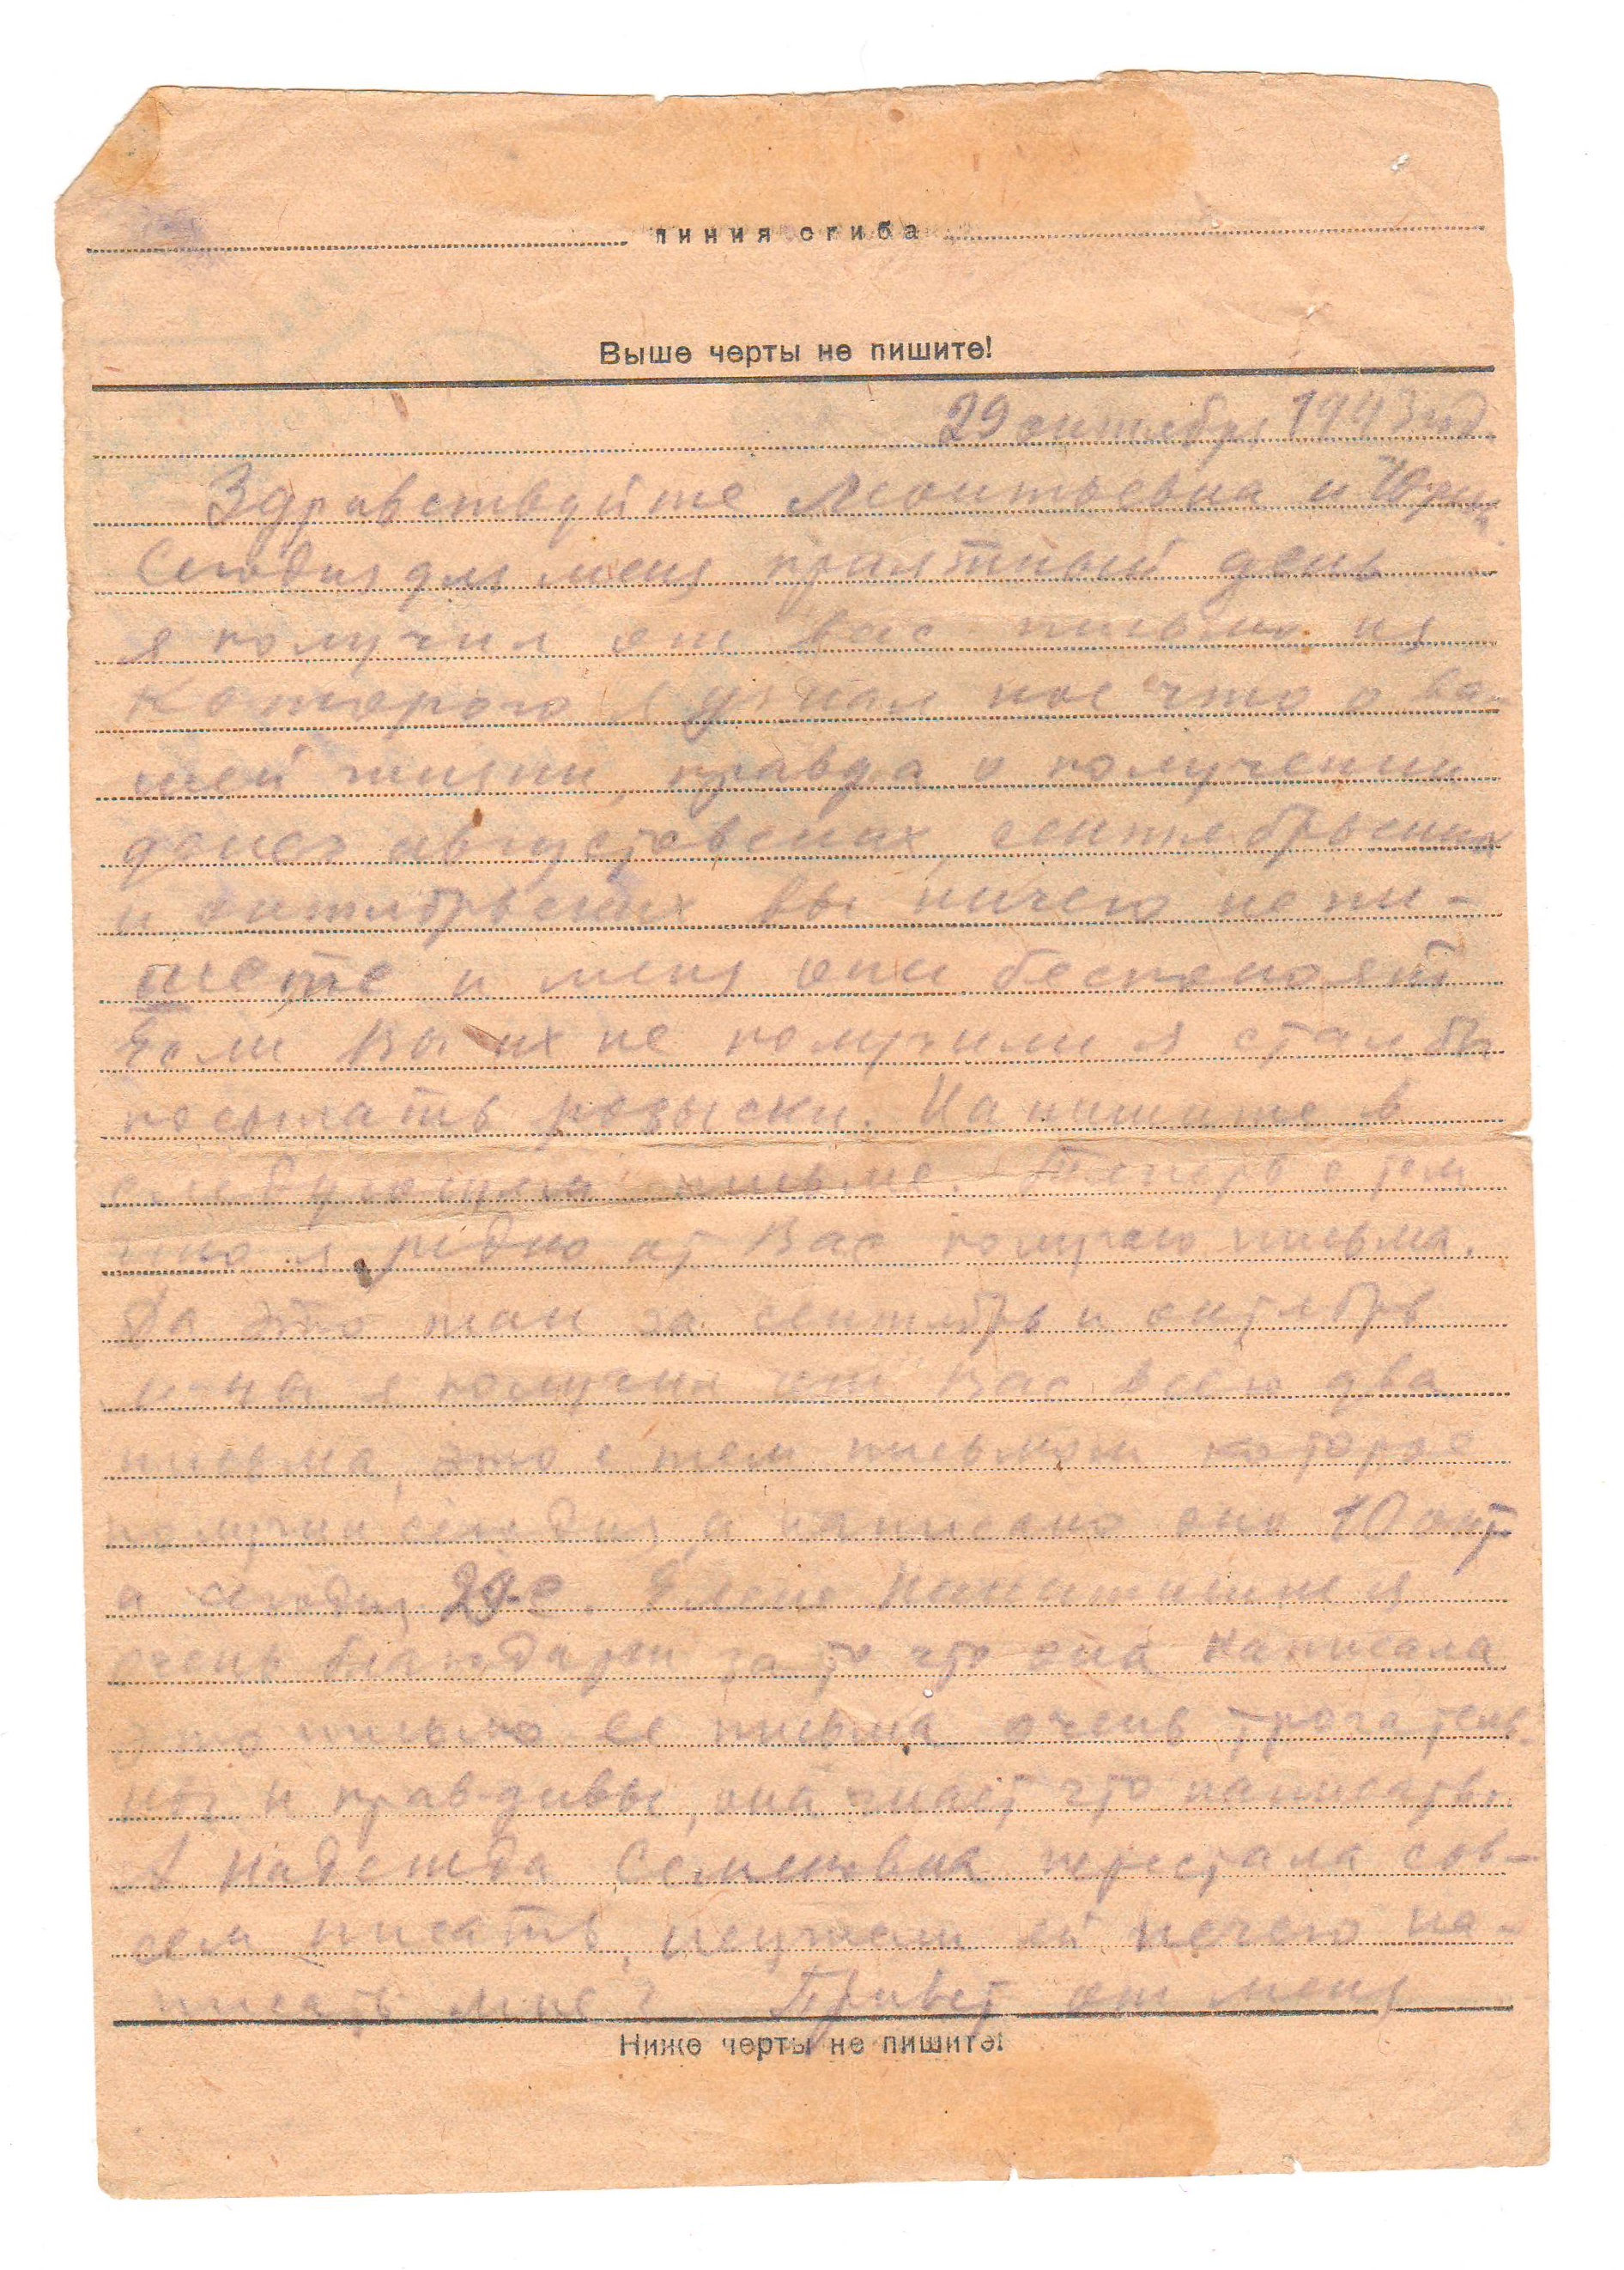 линия сгиба
Выше черты не пишите!
29 октября 1943 год.
Здравствуйте Леонтьевна и Юрий.
Сегодня для меня приятный день
я получил от вас письмо из
которого я узнал кое что о ва-
шей жизни, правда о получении
денег августовских, сентябрьских
и октябрьских вы ничего не пи-
шете и меня они беспокоят
Если Вы их не получили я стал бы
посылать розыски. Напишите в
следующем письме. Теперь о том
что я редко от Вас получаю письма.
Да это так за сентябрь и октябрь
м-цы я получил от Вас всего два
письма, это с тем письмом которое
получил сегодня, а написано оно 10 окт
а сегодня 29-е. Елене я
очень благодарен за то что она написала
это письмо ее письма очень трогатель-
ны и правдивы, она знает что написать.
А Надежда Семеновна перестала сов-
сем писать, неужели ей нечего на-
писать мне? Привет от меня
Ниже черты не пишите!